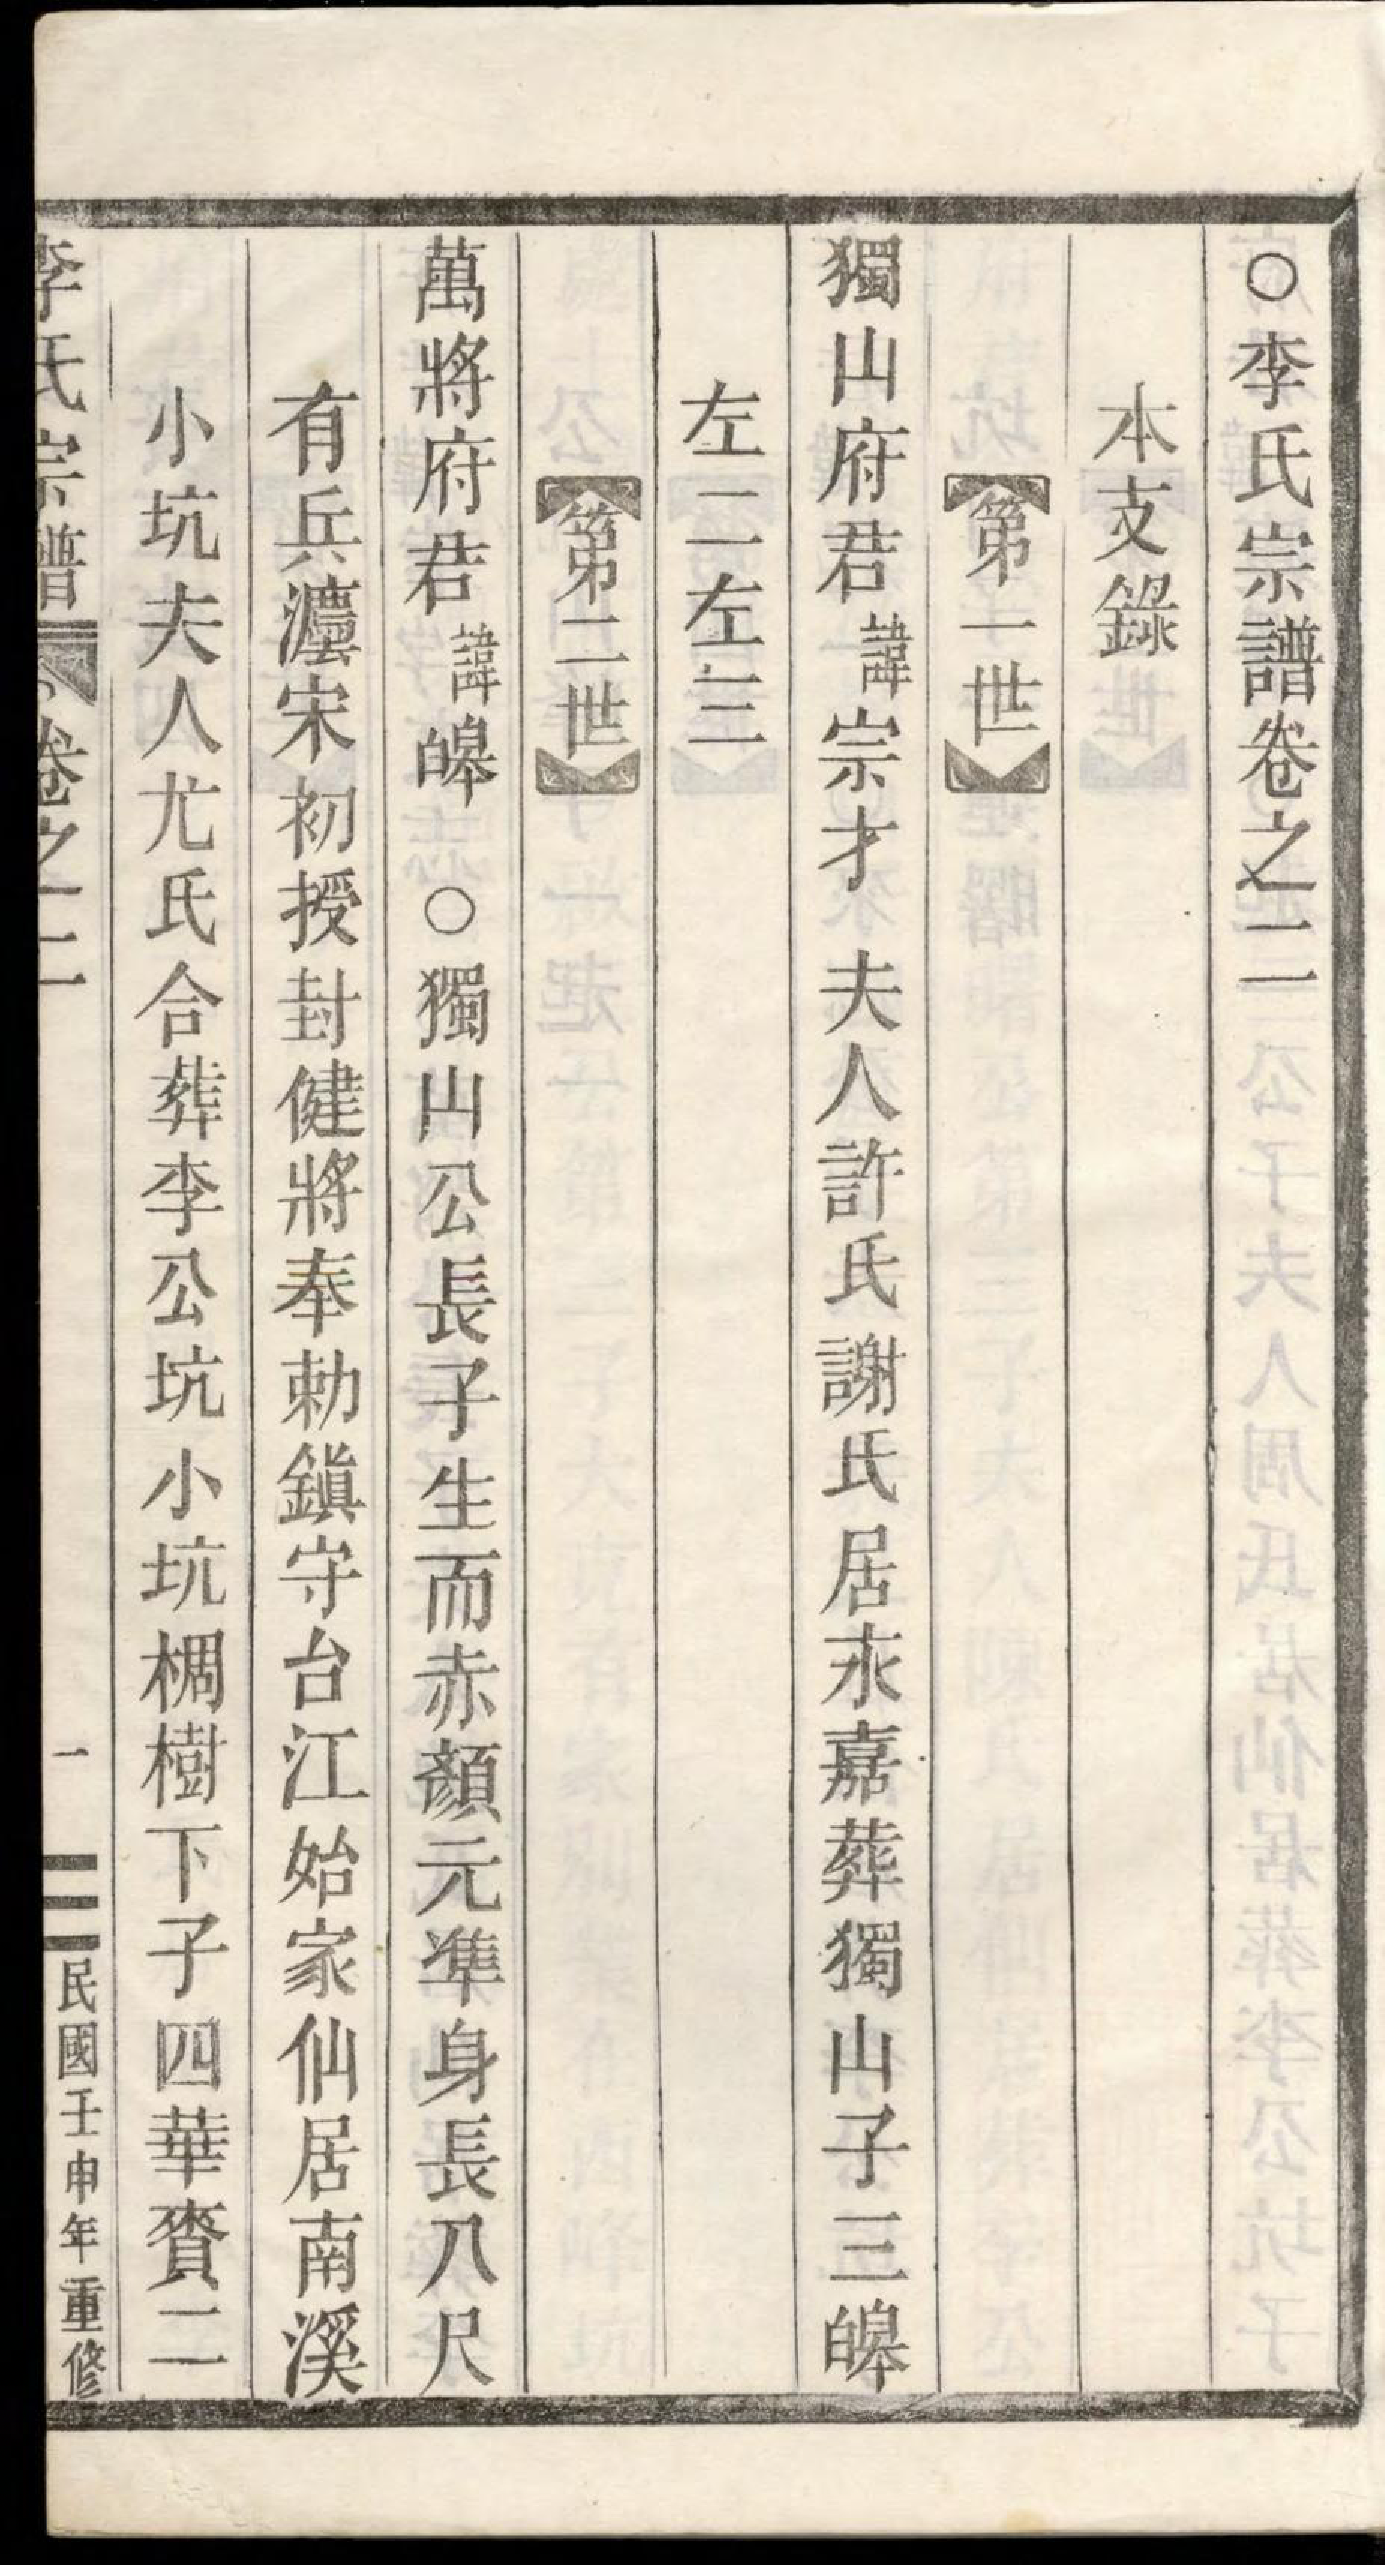 ○李氏宗譜卷之二
本支錄
第一世
獨山府君諱宗才 夫人許氏謝氏居永嘉葬獨山子三皡
左二左三
第二世
萬將府君諱皡 ○獨山公長子生而赤顏元準身長八尺
有兵灋宋初授封健將奉勅鎮守台江始家仙居南溪
小坑夫人尤氏合葬李公坑小坑棡樹下子四華賚二
李氏宗譜 卷之二 一 民國壬申年重修